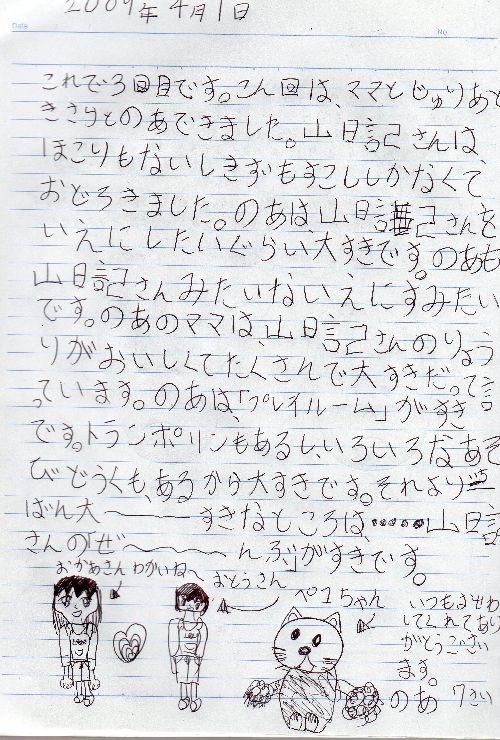 Date
No.
2009年4月1日
これで3回目です。こん回は、ママとじゅりあと
きさりとのあできました。山日記さんは、
ほこりもないしきずもすこししかなくて
おどろきました。のあは、山日記さんを
いえにしたいぐらい、大すきです。のあも
山日記さんみたいないえにすみたい
です。のあのママは、山日記さんのりょう
りがおいしくてたくさんで大すきだって言
っています。のあは、「プレイルーム」がすき
です。トランポリンもあるし、いろいろなあそ
びどうぐも、あるから大すきです。それより一
ばん大〜すきなところは、・・・・・山日記
さんの「ぜ〜んぶ」がすきです。
おかあさんわかいね〜
おとうさん
ペコちゃん
いつもおせわ
してくれてあり
がとうござい
ます。
のあ 7さい